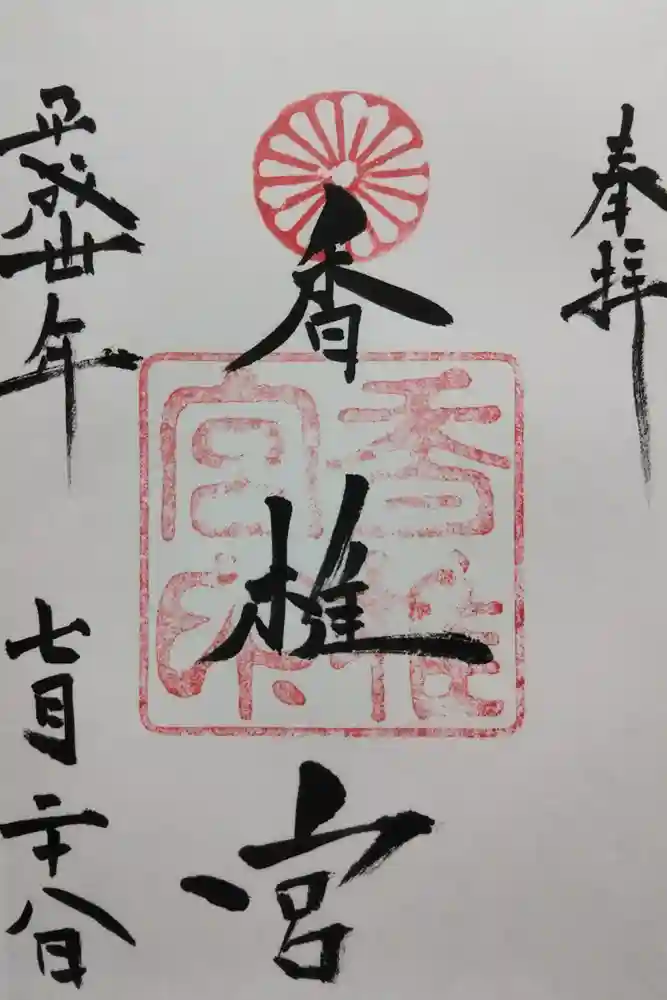 奉拝
香椎宮
香椎
宮
平成丗年
七月二十八日